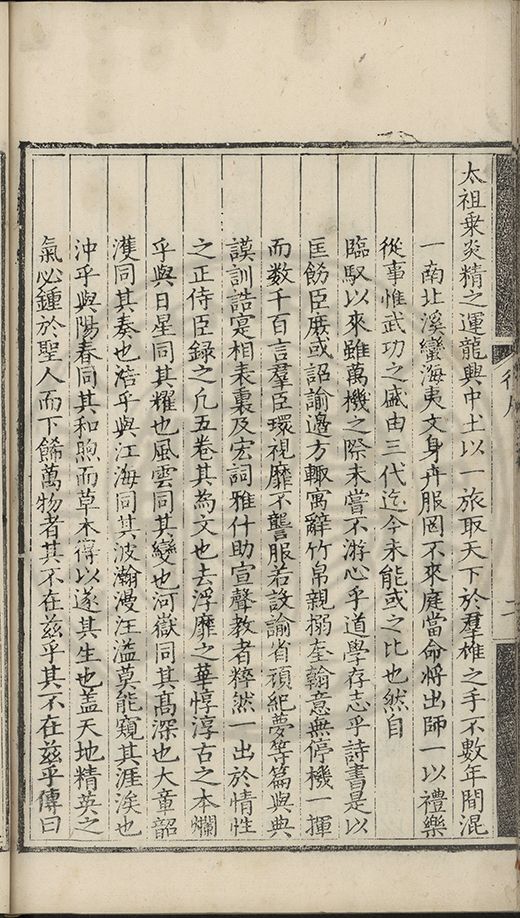 太祖乗炎精之運龍興中土以一旅取天下於羣雄之手不數年間混
一南北溪蠻海夷文身卉服罔不來庭當命將出師一以禮樂
從事惟武功之盛由三代迄今未能或之比也然自
臨馭以來雖萬機之際未嘗不游心乎道學存志乎詩書是以
匡飭臣庶或詔諭邊方輙寓辭竹帛親搦奎翰意無停機一揮
而数千百言羣臣環視靡不讋服若設諭省頑紀夢等篇與典
謨訓誥寔相表裏及宏詞雅什助宣聲教者粹然一出於情性
之正侍臣録之凡五卷其為文也去浮靡之華惇淳古之本爛
乎與日星同其耀也風雲同其變也河嶽同其髙深也大章韶
濩同其奏也浩乎與江海同其波瀚漫汪溢莫能窺其涯涘也
沖乎與陽春同其和煦而草木得以遂其生也盖天地精英之
氣必鍾於聖人而下餙萬物者其不在兹乎其不在兹乎傳曰